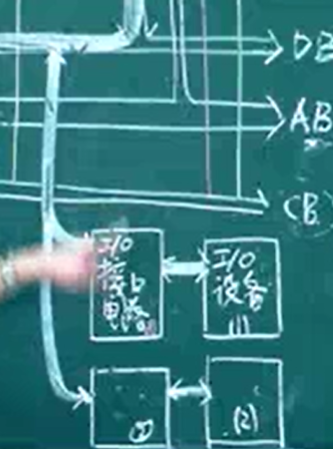 DB
AB
CB
I/O
接口
电路
I/O
设备
(1)
(2)
(2)